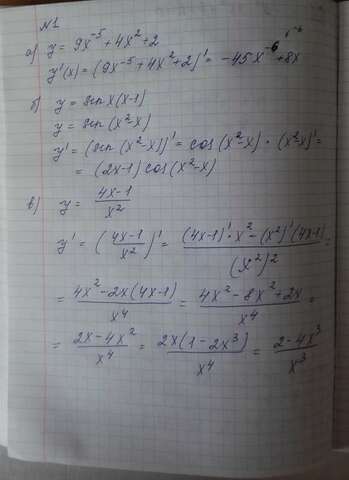 №1
а) y = 9x⁻⁵ + 4x² + 2
y'(x) = (9x⁻⁵ + 4x² + 2)' = -45x⁻⁶ + 8x
б) y = sin x(x-1)
y = sin (x²-x)
y' = (sin (x²-x))' = cos (x²-x) · (x²-x)' =
= (2x-1) cos (x²-x)
в) y = (4x-1)/x²
y' = ((4x-1)/x²)' = ((4x-1)' · x² - (x²)' (4x-1))/(x²)² =
= (4x² - 2x(4x-1))/x⁴ = (4x² - 8x² + 2x)/x⁴ =
= (2x - 4x²)/x⁴ = (2x(1-2x³))/x⁴ = (2-4x³)/x³